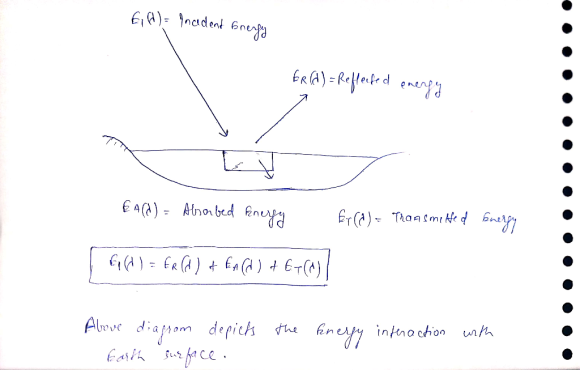 E₁(λ) = Incident Energy
ER(λ) = Reflected energy
EA(λ) = Absorbed Energy
ET(λ) = Transmitted Energy
E₁(λ) = ER(λ) + EA(λ) + ET(λ)
Above diagram depicts the Energy interaction with
Earth surface.